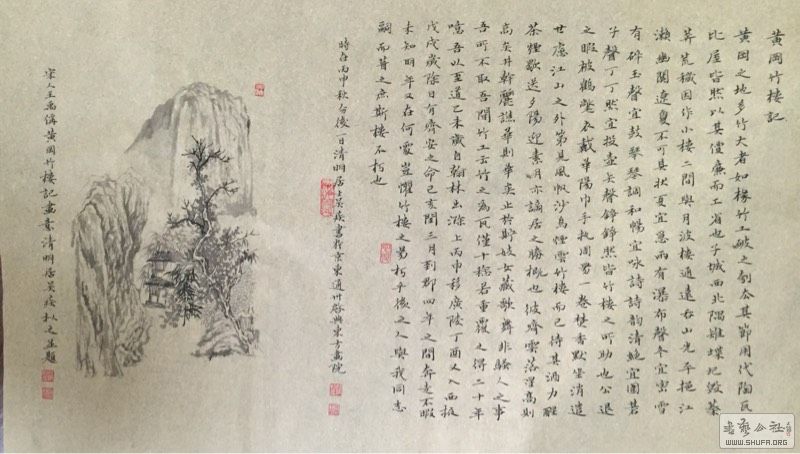 黄岡竹楼記
黄岡之地多竹大者如椽竹工破之刳去其節用代陶瓦
比屋皆然以其價廉而工省也子城西北隅雉堞圮毀蓁
莽荒穢因作小楼二間與月波楼通遠吞山光平挹江
瀨幽闃遼夐不可具狀夏宜急雨有瀑布聲冬宜密雪
有碎玉聲宜鼓琴琴調和暢宜咏詩詩韵清絶宜圍碁
子聲丁丁然宜投壺矢聲錚錚然皆竹楼之所助也公退
之暇被鶴氅衣戴華陽巾手執周易一卷焚香默坐消遣
世慮江山之外第見風帆沙鳥煙雲竹楼而已待其酒力醒
茶煙歇送夕陽迎素月亦謫居之勝概也彼齊雲落星高則
高矣井幹麗譙華則華矣止於貯妓女藏歌舞非騷人之事
吾所不取吾聞竹工云竹之為瓦僅十稔若重覆之得二十年
噫吾以至道乙未歲自翰林出滁上丙申移廣陵丁酉又入西掖
戊戌歲除日有齊安之命己亥閏三月到郡四年之間奔走不暇
未知明年又在何處豈懼竹楼之易朽乎後之人與我同志
嗣而葺之庶斯楼不朽也
時在丙申秋分後一日清明居士吳書於京東通州啓興東方畫院
宋人王禹偁黄岡竹楼記畫意清明居吳拟之并題
書藝公社
WWW.SHUFA.ORG